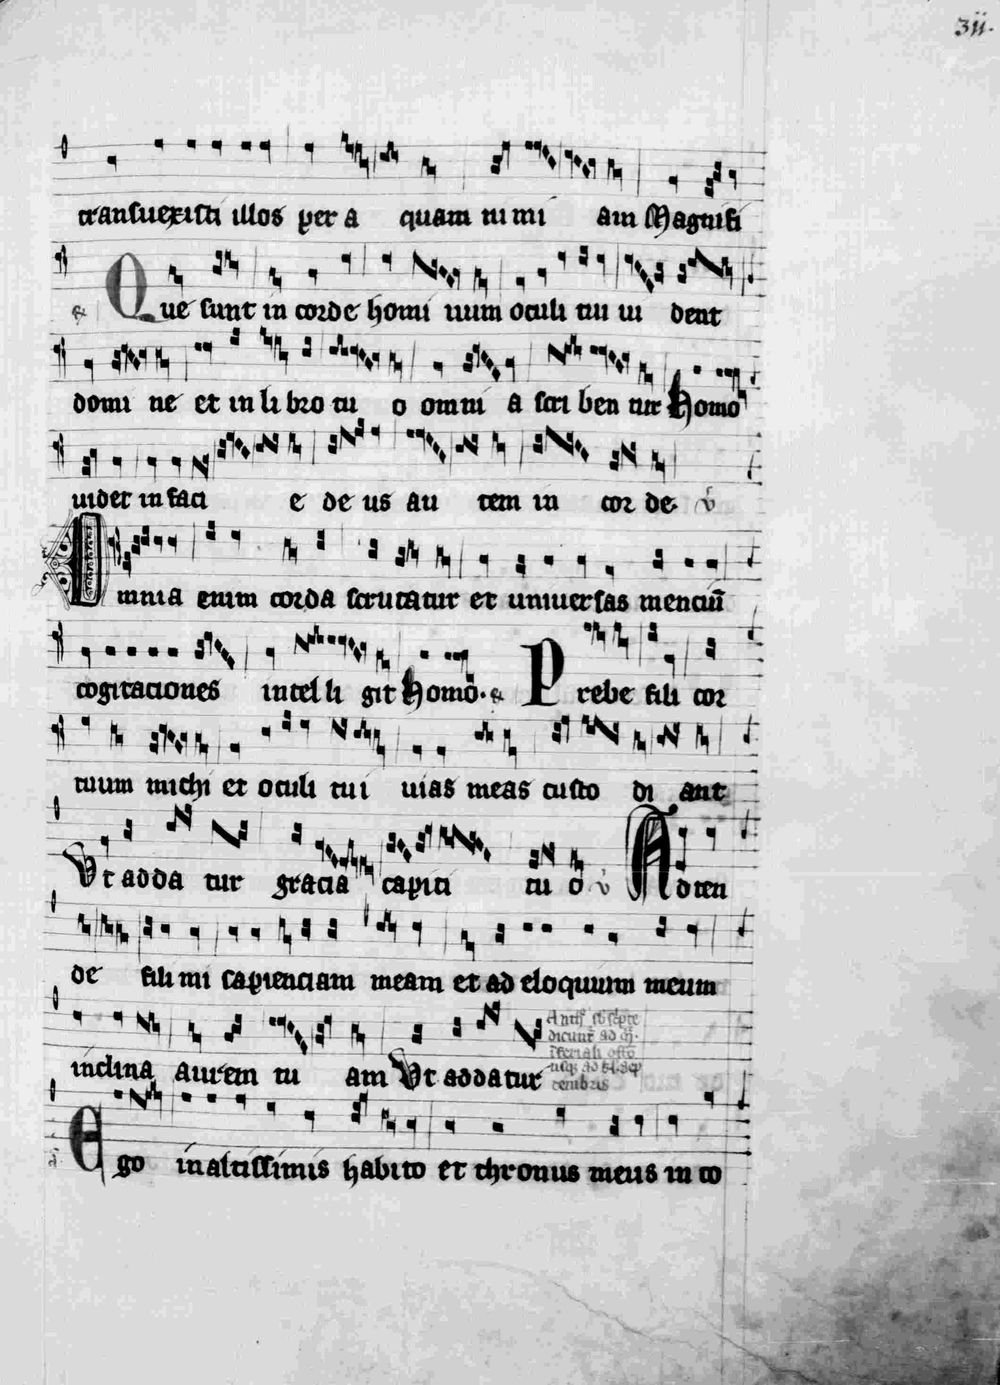 3ii.
transuexisti illos per a quam nimi am Magnifi
Que sunt in corde homi num oculi tui ui dent
domi ne et in li bro tu o omni a scri ben tur Homo
uidet in faci e de us au tem in cor de. v̓
Omnia enim corda scrutatur et uniuersas menciū
cogitaciones intel li git Homo. Prebe fili cor
tuum michi et oculi tui uias meas custo di ant
Vt adda tur gracia capiti tu o v̓ Adten
de fili mi sapienciam meam et ad eloquium meum
inclina aurem tu am Vt addatur
dicunt᷑ ad
usq; ad
tembris
Ego in altissimis habito et thronus meus in co